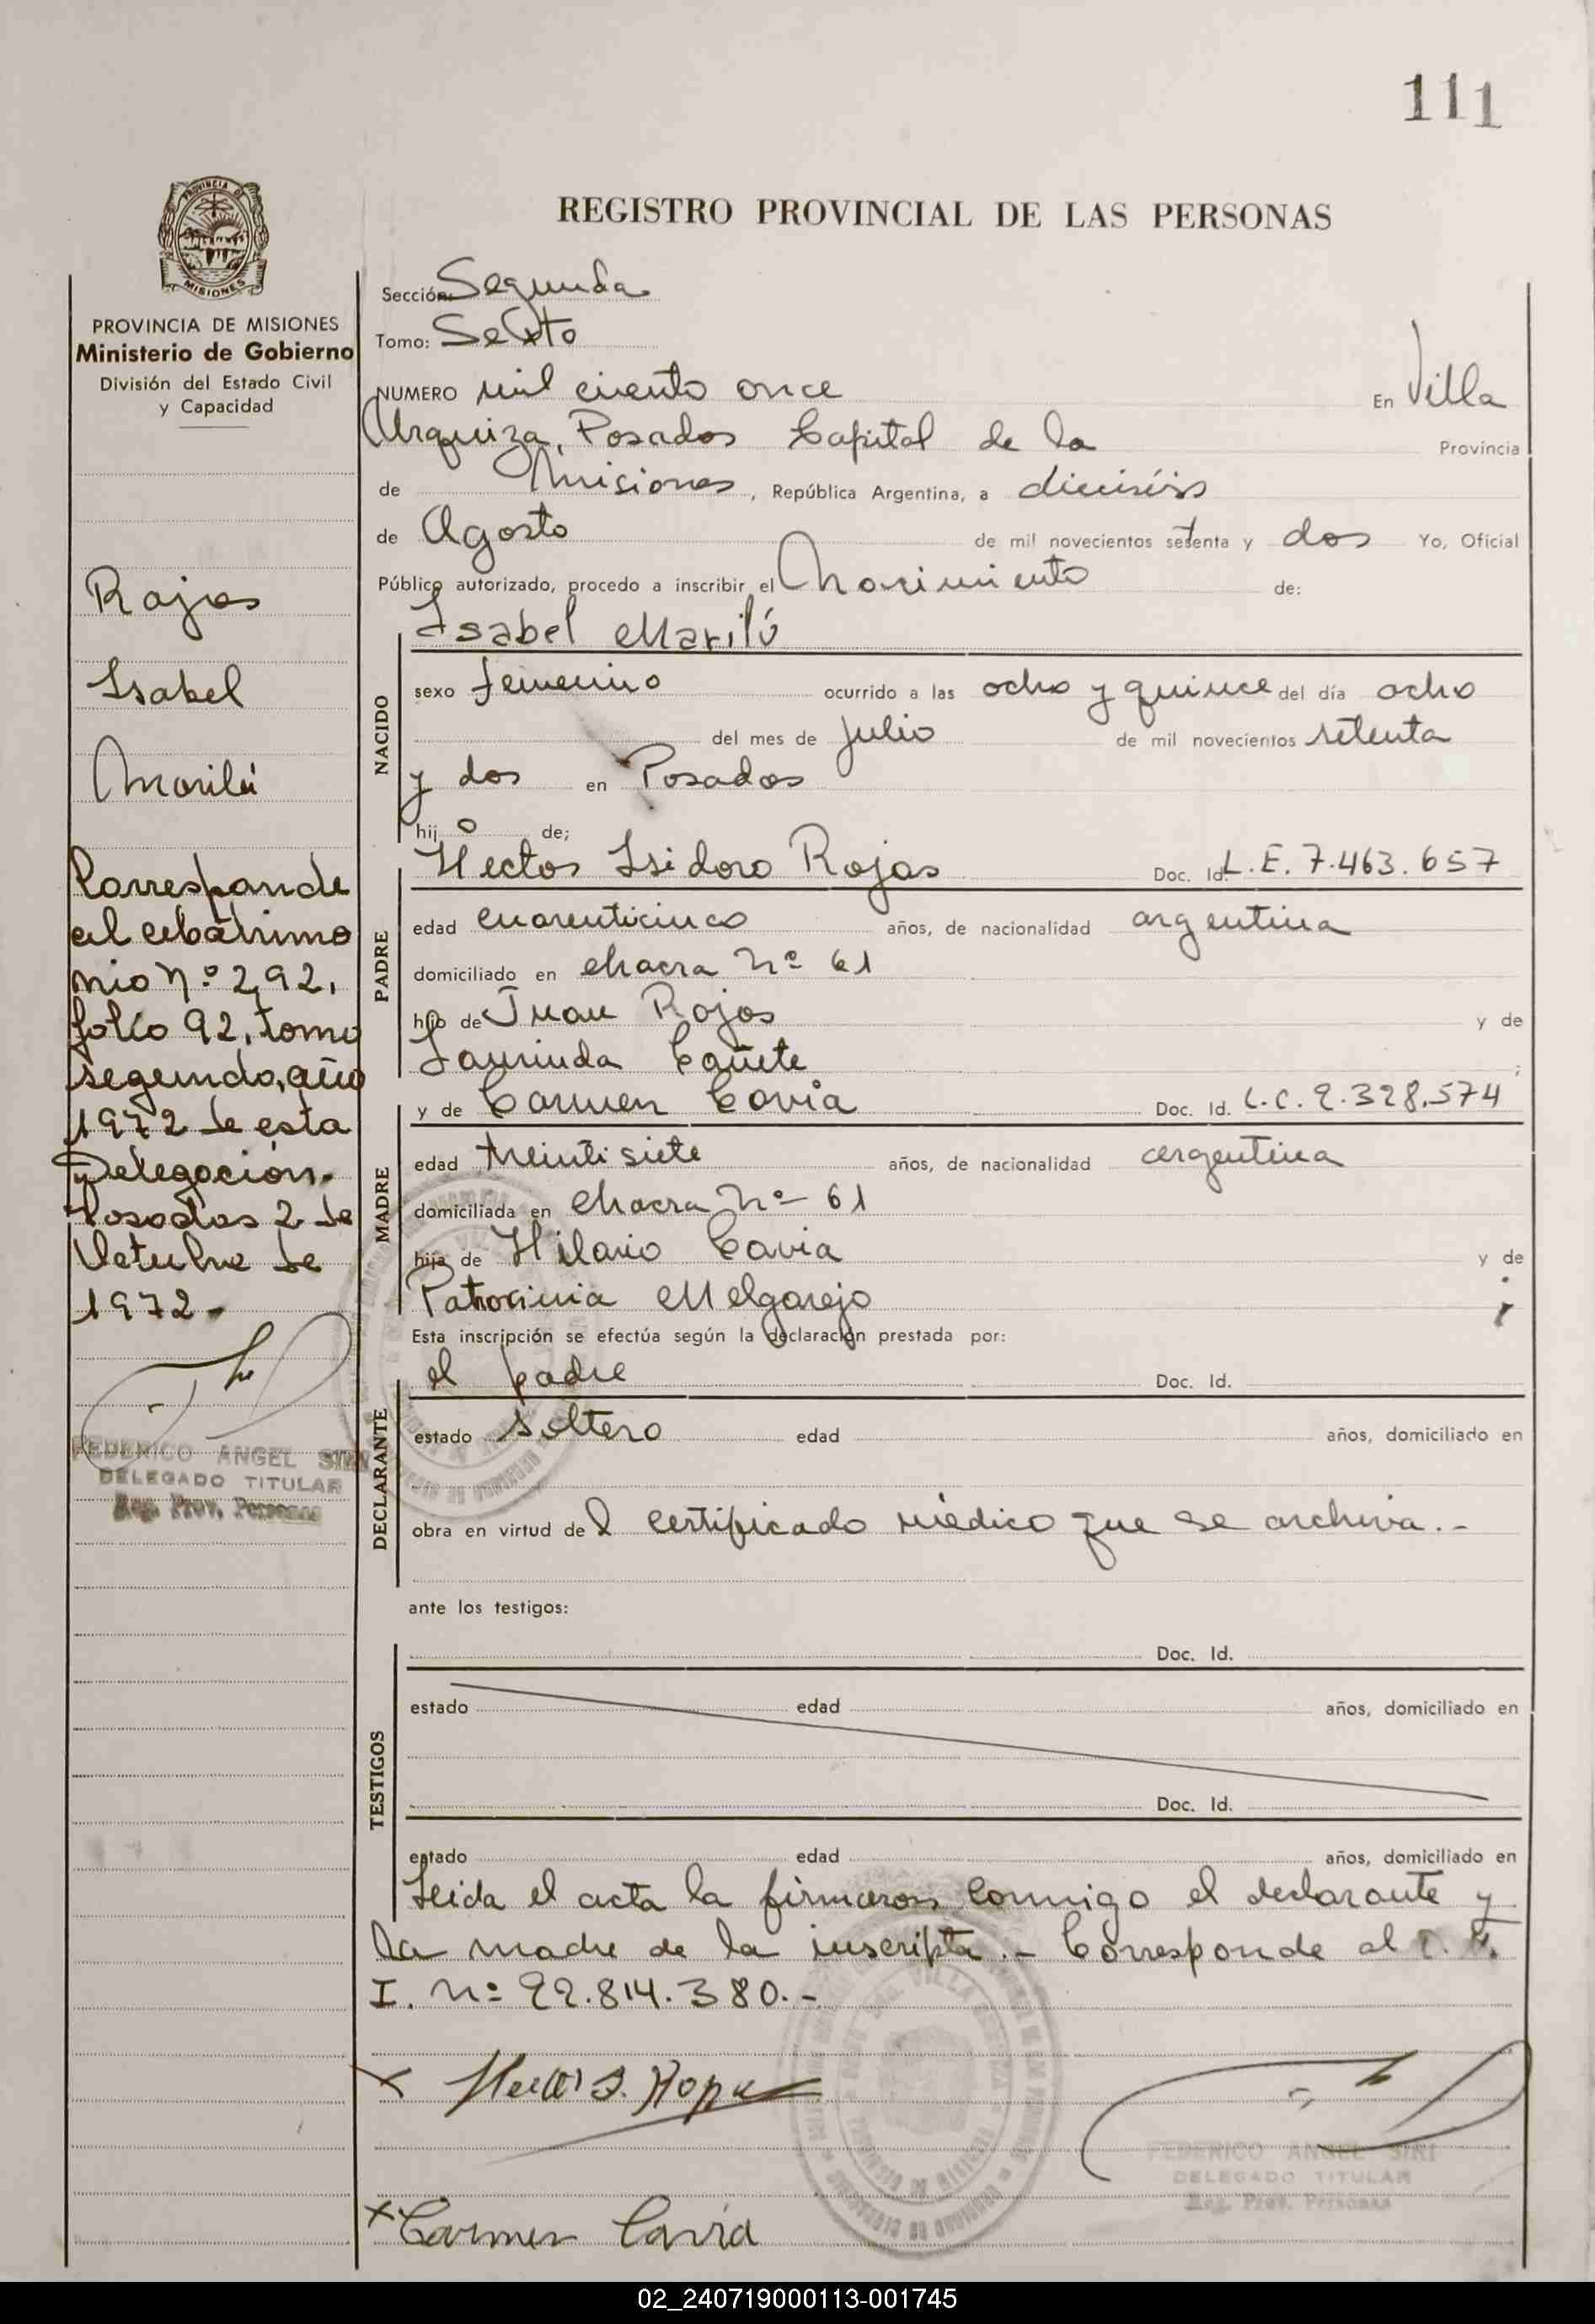 111
PROVINCIA DE
MISIONES
REGISTRO PROVINCIAL DE LAS PERSONAS
PROVINCIA DE MISIONES
Ministerio de Gobierno
División del Estado Civil
y Capacidad
Rojas
Isabel
Marilú
Corresponde
al
nio N.º 292,
folio 92, tomo
segundo, año
1972 de esta
Delegación.
Posadas 2 de
Octubre de
1972-
FEDERICO ANGEL
DELEGADO TITULAR
Reg. Prov. Personas
Sección: Segunda
Tomo: Sexto
NUMERO mil ciento once En Villa
Urquiza, Posadas Capital de la Provincia
de Misiones, República Argentina, a dieciséis
de Agosto de mil novecientos setenta y dos Yo, Oficial
Público autorizado, procedo a inscribir el Nacimiento de:
Isabel Marilú
NACIDO
sexo femenino ocurrido a las ocho y quince del día ocho
del mes de julio de mil novecientos setenta
y dos en Posadas
hij o de;
PADRE
Hector Isidoro Rojas Doc. Id. L.E. 7.463.657
edad cuarenticinco años, de nacionalidad argentina
domiciliado en chacra Nº 61
hijo de Juan Rojas y de
Laurinda Cañete ;
MADRE
y de Carmen Cavia Doc. Id. L.C. 2.328.574
edad treintisiete años, de nacionalidad argentina
domiciliada en chacra Nº 61
hija de Hilario Cavia y de
Patrocinia Melgarejo ;
Esta inscripción se efectúa según la declaración prestada por:
DECLARANTE
el padre Doc. Id.
estado soltero edad años, domiciliado en
obra en virtud del certificado médico que se archiva.-
ante los testigos:
TESTIGOS
Doc. Id.
estado edad años, domiciliado en
Doc. Id.
estado edad años, domiciliado en
Leida el acta la firmaron conmigo el declarante y
la madre de la inscripta.- Corresponde al
I. Nº 22.814.380.-
x Hector I. Rojas
FEDERICO ANGEL SINI
DELEGADO TITULAR
Reg. Prov. Personas
x Carmen Cavia
02_240719000113-001745